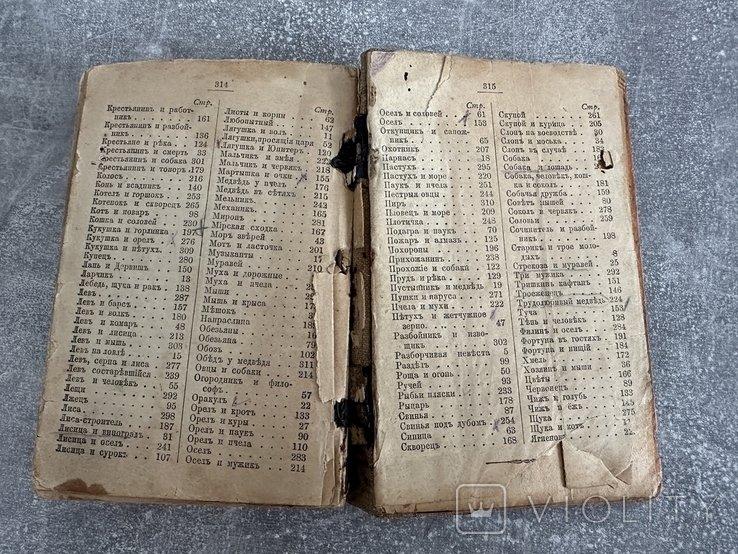 314
Стр.
Крестьянинъ и работ-
никъ 161
Крестьянинъ и разбой-
никъ 136
Крестьяне и рѣка 124
Крестьянинъ и смерть 33
Крестьянинъ и собака 301
Крестьянинъ и топоръ 179
Колосъ 216
Конь и всадникъ 140
Котелъ и горшокъ 253
Котенокъ и скворецъ 265
Котъ и поваръ 98
Кошка и соловей 230
Кукушка и горлинка 197
Кукушка и орелъ 276
Кукушка и пѣтухъ 309
Купецъ 280
Лань и Дервишъ 150
Ларчикъ 13
Лебедь, щука и ракъ 138
Левъ 287
Левъ и барсъ 157
Левъ и волкъ 180
Левъ и комаръ 48
Левъ и лисица 213
Левъ и мышь 303
Левъ на ловлѣ 15
Левъ, серна и лиса 277
Левъ состарѣвшійся 239
Левъ и человѣкъ 55
Лещи 292
Лжецъ 95
Лиса 298
Лиса-строитель 187
Лисица и виноградъ 31
Лисица и оселъ 241
Лисица и сурокъ 107
Стр.
Листы и корни 62
Любопытный 147
Лягушка и волъ 11
Лягушки, просящія царя 52
Лягушка и Юпитеръ 120
Мальчикъ и змѣя
Мальчикъ и червякъ
Мартышка и очки 155
Медвѣдь у пчелъ 176
Медвѣдь въ сѣтяхъ 215
Мельникъ
Механикъ
Миронъ 281
Мірская сходка 167
Моръ звѣрей 43
Мотъ и ласточка 201
Музыканты
Муравей
Муха и дорожные
Муха и пчела
Мыши
Мышь и крыса
Мѣшокъ
Напраслина
Обезьяны
Обезьяна 79
Обозъ 102
Обѣдъ у медвѣдя 311
Овцы и собаки 214
Огородникъ и фило-
софъ 57
Оракулъ 22
Орелъ и кротъ 133
Орелъ и куры 27
Орелъ и паукъ 90
Орелъ и пчела 110
Оселъ 283
Оселъ и мужикъ 214
315
Стр.
Оселъ и соловей 61
Оселъ 153
Откупщикъ и сапож-
никъ 65
Охотникъ 207
Парнасъ 18
Пастухъ 295
Пастухъ и море 80
Паукъ и пчела 251
Пестрыя овцы 244
Пиръ 310
Пловецъ и море 209
Плотичка 245
Подагра и паукъ 70
Пожаръ и алмазъ 125
Похороны 196
Прихожанинъ 238
Прохожіе и собаки 122
Прудъ и рѣка 129
Пустынникъ и медвѣдь 19
Пушки и паруса 271
Пчела и мухи 222
Пѣтухъ и жемчужное
зерно 47
Разбойникъ и изво-
щикъ 302
Разборчивая невѣста 5
Раздѣлъ 99
Роща и огонь 50
Ручей 93
Рыбьи пляски 233
Рыцарь 178
Свинья 87
Свинья подъ дубомъ 254
Синица 63
Скворецъ 168
Скупой 261
Скупой и курица 205
Слонъ на воеводствѣ 30
Слонъ и моська 34
Слонъ въ случаѣ
Собака
Собака и лошадь
Собака, человѣкъ, кош-
ка и соколъ 181
Собачья дружба 159
Совѣтъ мышей 80
Соколъ и червякъ 278
Соловьи 259
Сочинитель и разбой-
никъ 198
Старикъ и трое моло-
дыхъ 8
Стрекоза и муравей 25
Три мужика 292
Тришкинъ кафтанъ 151
Троеженецъ 146
Трудолюбивый медвѣдь 224
Туча 153
Тѣнь и человѣкъ 128
Филинъ и оселъ 284
Фортуна въ гостяхъ 191
Фортуна и нищій 184
Хмель 172
Хозяинъ и мыши 36
Цвѣты 166
Червонецъ 89
Чижъ и голубь 133
Чижъ и ёжъ
Щука 275
Щука и котъ 71
Ягненокъ
VIOLITY